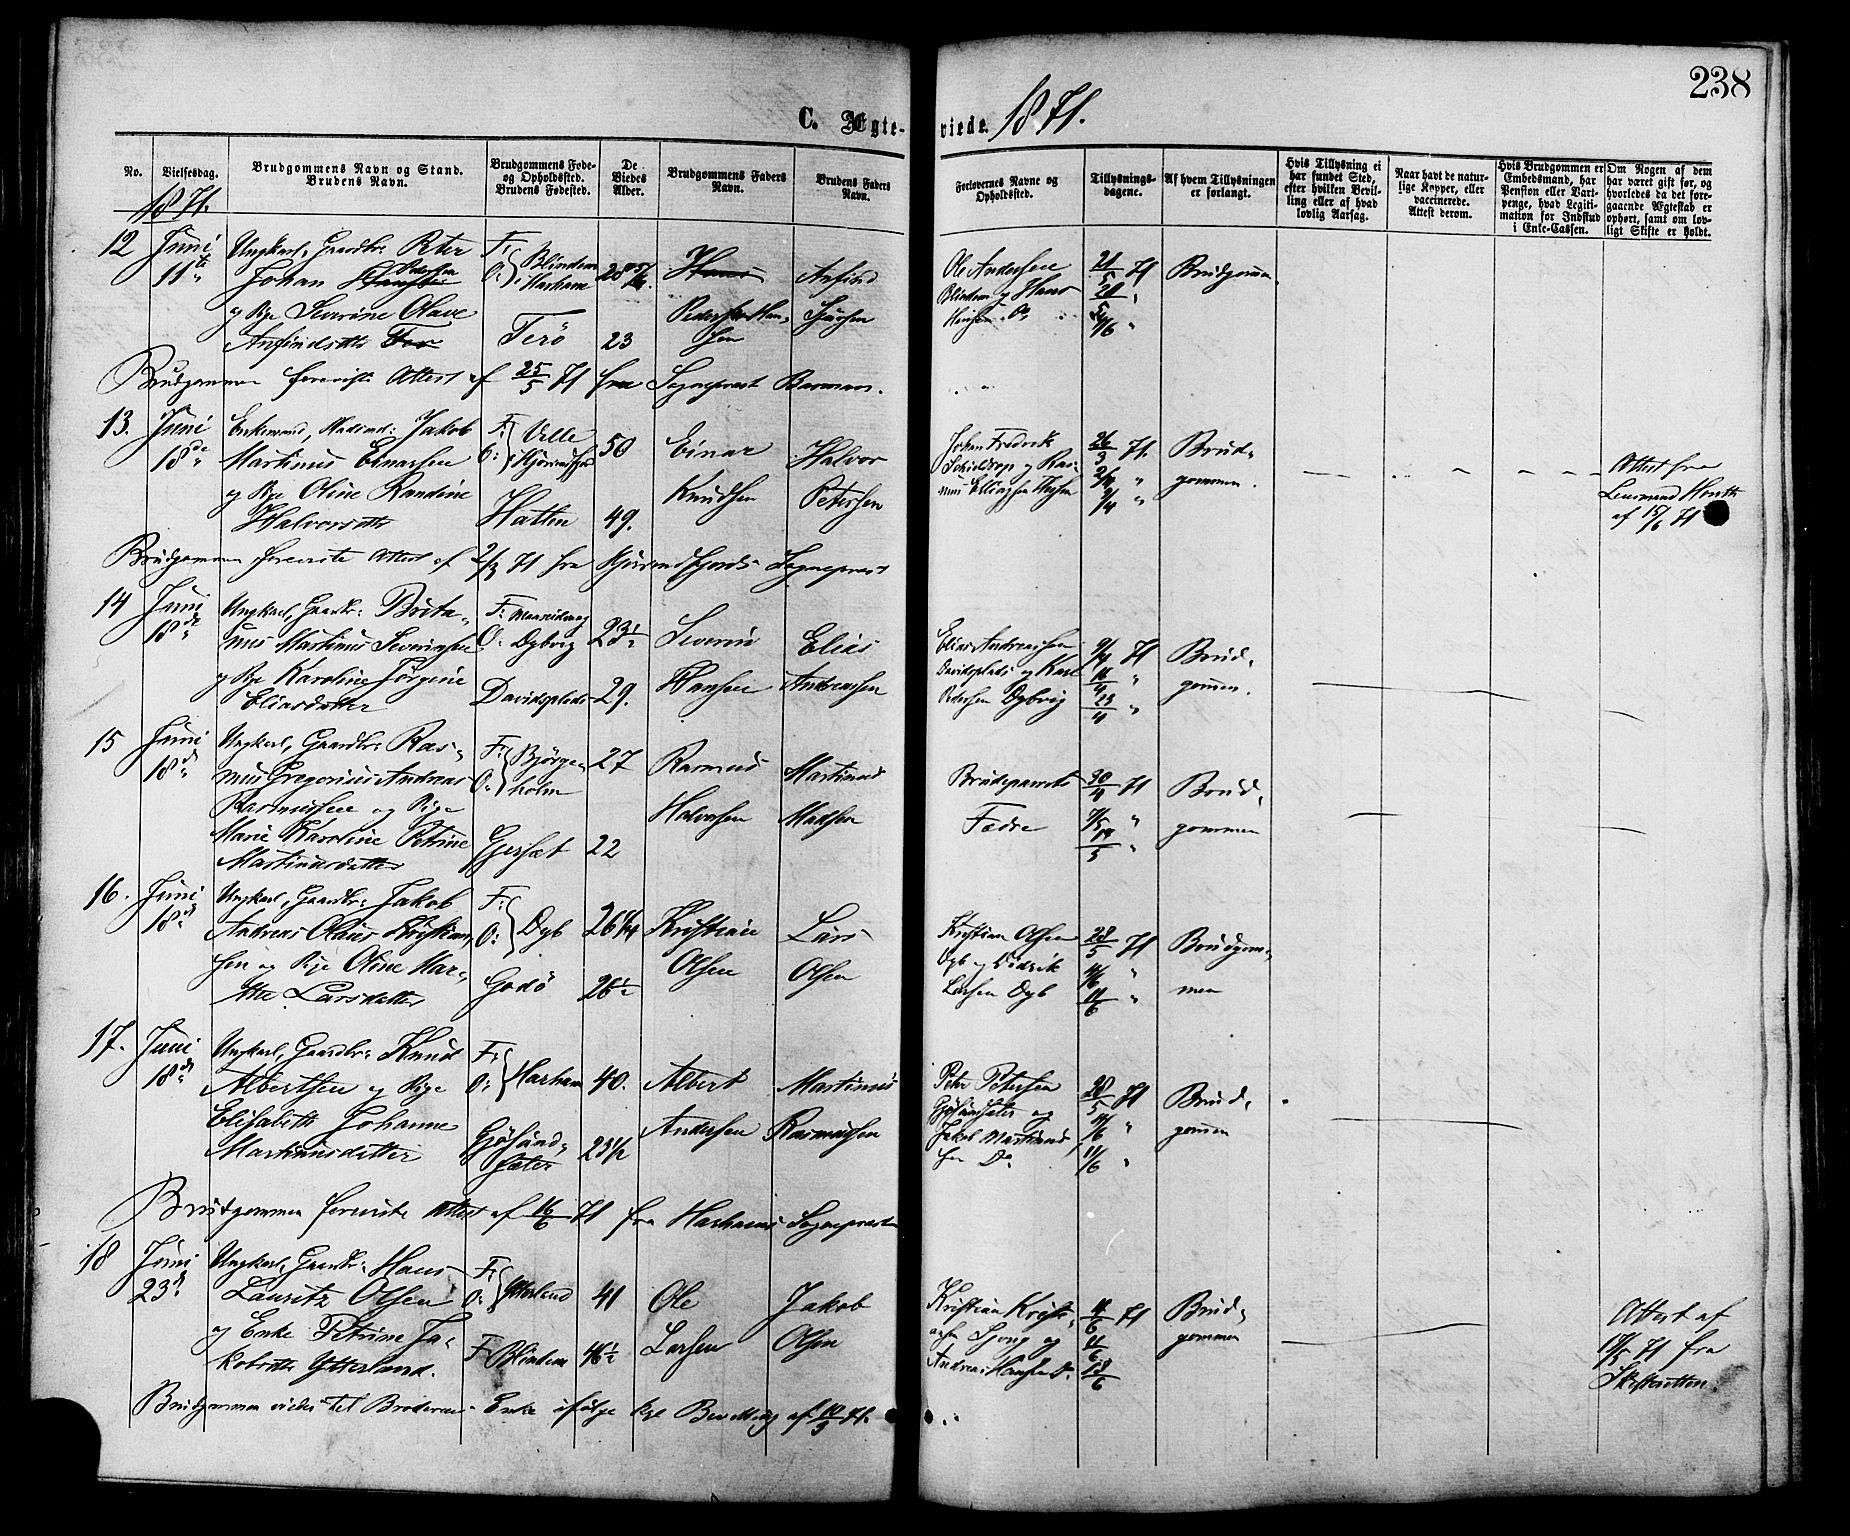 238
C. Ægte-
viede. 1871.
No.
Vielsesdag.
Brudgommens Navn og Stand.
Brudens Navn.
Brudgommens Føde-
og Opholdssted.
Brudens Fødested.
De
Viedes
Alder.
Brudgommens Faders
Navn.
Brudens Faders
Navn.
Forlovernes Navne og
Opholdssted.
Tillysnings-
dagene.
Af hvem Tillysningen
er forlangt.
Hvis Tillysning ei
har fundet Sted,
efter hvilken Bevil-
ling eller af hvad
lovlig Aarsag.
Naar havt de natur-
lige Kopper, eller
vaccinerede.
Attest derom.
Hvis Brudgommen er
Embedsmand, har
Pension eller Vart-
penge, hvad Legiti-
mation for Indskud
i Enke-Cassen.
Om Nogen af dem
har været gift før, og
hvorledes da det fore-
gaaende Ægteskab er
ophørt, samt om lov-
ligt Skifte er holdt.
1871.
12 Juni 11te
Ungkarl, Gaardbr: Peter
Johan Pedersen
og Pge Severine Olave
Anfindsdtr
F: O: Blindem Harham
Terö 23
Hans
Peder Han-
sen
Anfind
Ole Andersen
Blindem og Hans
21/5 71
Brudgommen
Brudgommen foreviste Attest af 25/5 71 fra Sogneprest
13. Juni 18de
Enkemand, Jakob
Martinus Einarsen
og Pge Oline Randine
Halvorsdtr
F: O: Velle Hjörundfjord 50
Hatlen 49.
Einar
Knudsen
Halvor
Petersen
Johan Fredrik
26/3 71.
2/4 "
9/4 "
Brud-
gommen.
Attest fra
Lensmand
af 15/6 71
Brudgommen foreviste Attest af 2/3 71 fra Hjörundfjords Sogneprest
14 Juni 18de
Ungkarl, Gaardbr: Brita-
nus Martinus Severinsen
og Pge Karoline Jörgine
Eliasdatter
F:
O: Dybvig 23½
Davidsplads 29.
Severin
Hansen
Elias
Andreassen
Elias Andreassen
Davidsplads og Karl
Petersen Dybvig
9/4 71
16/4 "
23/4 "
Brud-
gommen.
15 Juni 18de
Ungkarl, Gaardbr: Ras-
mus Gregorius Andreas
Rasmussen og Pige
Marie Karoline Petrine
Martinusdatter
F: O: Björge-
holm 27
Gjersæt 22
Rasmus
Halvorsen
Martinus
Madsen
Brudeparrets
Fædre
30/4 71
7/5 "
19/5 "
Brud-
gommen
16. Juni 18de
Ungkarl, Gaardbr: Jakob
Andreas Olaus Kristian-
sen og Pige Oline Mar-
the Larsdatter
F: O: Dyb 26 1/4
Godö 26½
Kristian
Olsen
Lars
Olsen
Kristian Olsen
Dyb og Didrik
Larsen Dyb
28/5 71
4/6 "
11/6 "
Brudgom-
men
17. Juni 18de
Ungkarl, Gaardbr: Knud
Albertsen og Pige
Elisabeth Johanne
Martinusdatter
F: O: Harham 40.
Gjösund-
sæter 23½
Albert
Andersen
Martinus
Rasmussen
Peter Petersen
Gjösundsæter og
Jakob Martinus-
sen Do
28/5 71
4/6 "
11/6 "
Brud-
gommen
Brudgommen foreviste Attest af 16/6 71 fra Harhams Sogneprest
18 Juni 23de
Ungkarl, Gaardbr: Hans
Lauritz Olsen
og Enke Petrine Ja-
kobsdtr Ytterland.
F: O: Ytterland 41
F: Blindem 46½
Ole
Larsen
Jakob
Olsen
Kristian Kristi-
ansen og
Andreas Hansen Do.
4/6 71
11/6
18/6
Brud-
gommen
Attest af
71 fra
Skifteretten.
Brudgommen viedes til Broderens Enke ifölge kgl Bevilling af 10/3 71.